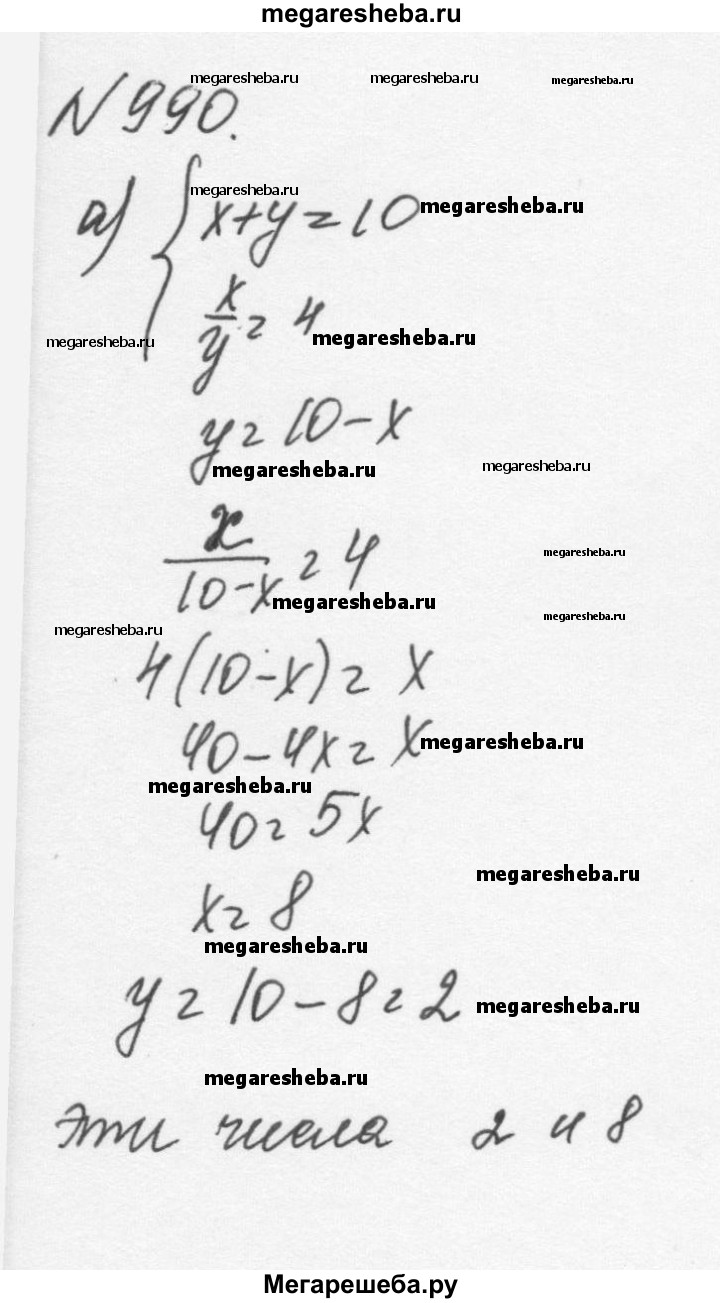 megaresheba.ru
megaresheba.ru megaresheba.ru megaresheba.ru
N 990.
megaresheba.ru
а) { x+y=10 megaresheba.ru
x/y = 4
megaresheba.ru megaresheba.ru
y=10-x
megaresheba.ru megaresheba.ru
x/(10-x) = 4
megaresheba.ru
megaresheba.ru
megaresheba.ru megaresheba.ru
4(10-x)=x
40-4x=x megaresheba.ru
megaresheba.ru
40=5x
megaresheba.ru
x=8
megaresheba.ru
y=10-8=2 megaresheba.ru
megaresheba.ru
Эти числа 2 и 8
Мегарешеба.ру